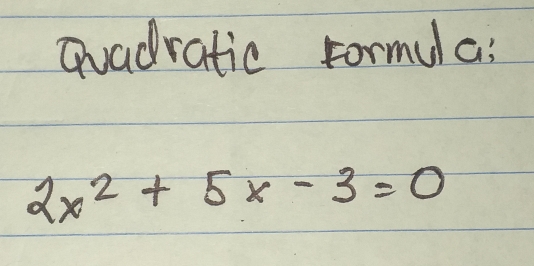 Quadratic Formula:
2x² + 5x - 3 = 0